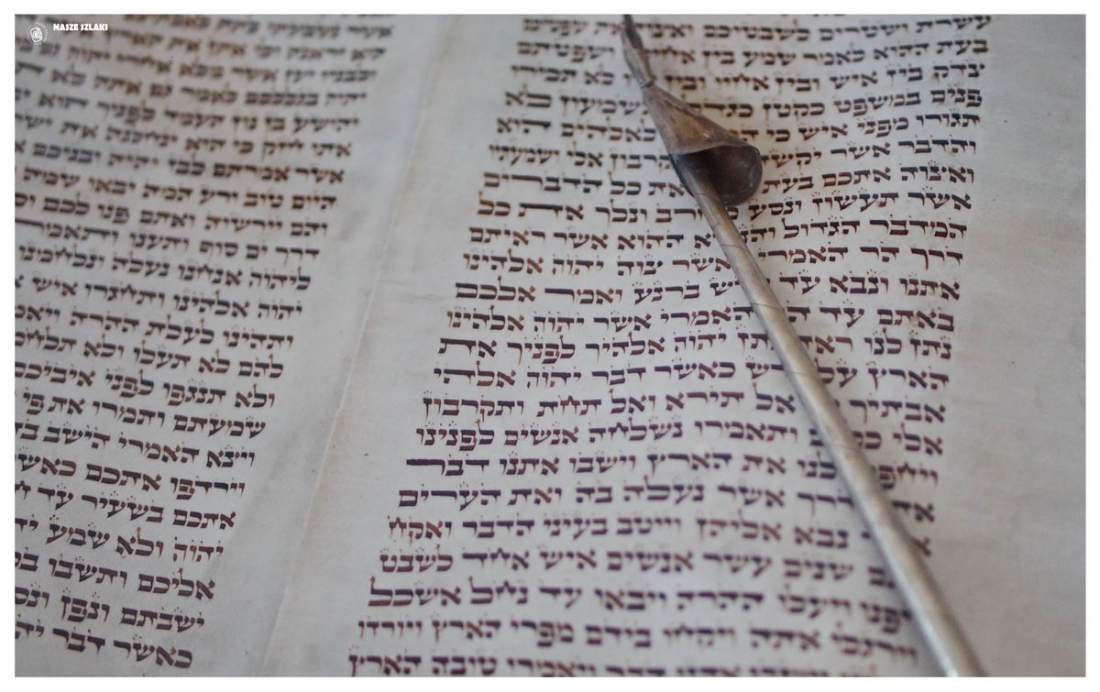 MASZE SZLAKI
עשרת ושטרים לשבטיכם
בעת ההוא לאמר שמע בין ושפטתם
צדק בין איש ובין אחיו ובין לא תכירו
פנים במשפט כקטן כגדל תשמעון לא
תגורו מפני איש כי לאלהים הוא
והדבר אשר יקשה תקרבון אלי ושמעתיו
ואצוה אתכם בעת את כל הדברים
אשר תעשון ונסע מחרב ונלך את כל
המדבר הגדול ההוא אשר ראיתם
דרך הר האמרי כאשר צוה יהוה אלהינו
אתנו ונבא עד קדש ברנע ואמר אלכם
באתם עד הר האמרי אשר יהוה אלהינו
נתן לנו ראה נתן יהוה אלהיך לפניך את
הארץ עלה רש כאשר דבר יהוה אלהי
אבתיך אל תירא ואל תחת ותקרבון
אלי ותאמרו נשלחה אנשים לפנינו
לנו את הארץ וישבו אתנו דבר
הדרך אשר נעלה בה ואת הערים
נבא אליהן וייטב בעיני הדבר ואקח
שנים עשר אנשים איש אחד לשבט
ויפנו ויעלו ההרה ויבאו עד נחל אשכל
אתה ויקחו בידם מפרי הארץ ויורדו
ויאמרו טובה הארץ
יהוה בגללכם לאמר גם אתה לא
יהושע בן נון העמד לפניך הוא
אתו חזק כי הוא ינחלנה את
אשר אמרתם לבז יהיה ובניכם
היום טוב ורע המה יבאו שמה
והם יירשוה ואתם פנו לכם
דרך ים סוף ותענו ותאמרו
ליהוה אנחנו נעלה ונלחמנו
יהוה אלהינו ותחגרו איש
ותהינו לעלת ההרה
להם לא תעלו ולא
ולא תנגפו לפני איביכם
שמעתם ותמרו את פי
ויצא האמרי הישב
וירדפו אתכם
אתכם בשעיר עד
יהוה ולא שמע
אליכם ותשבו
ישבתם ונפן
כאשר דבר